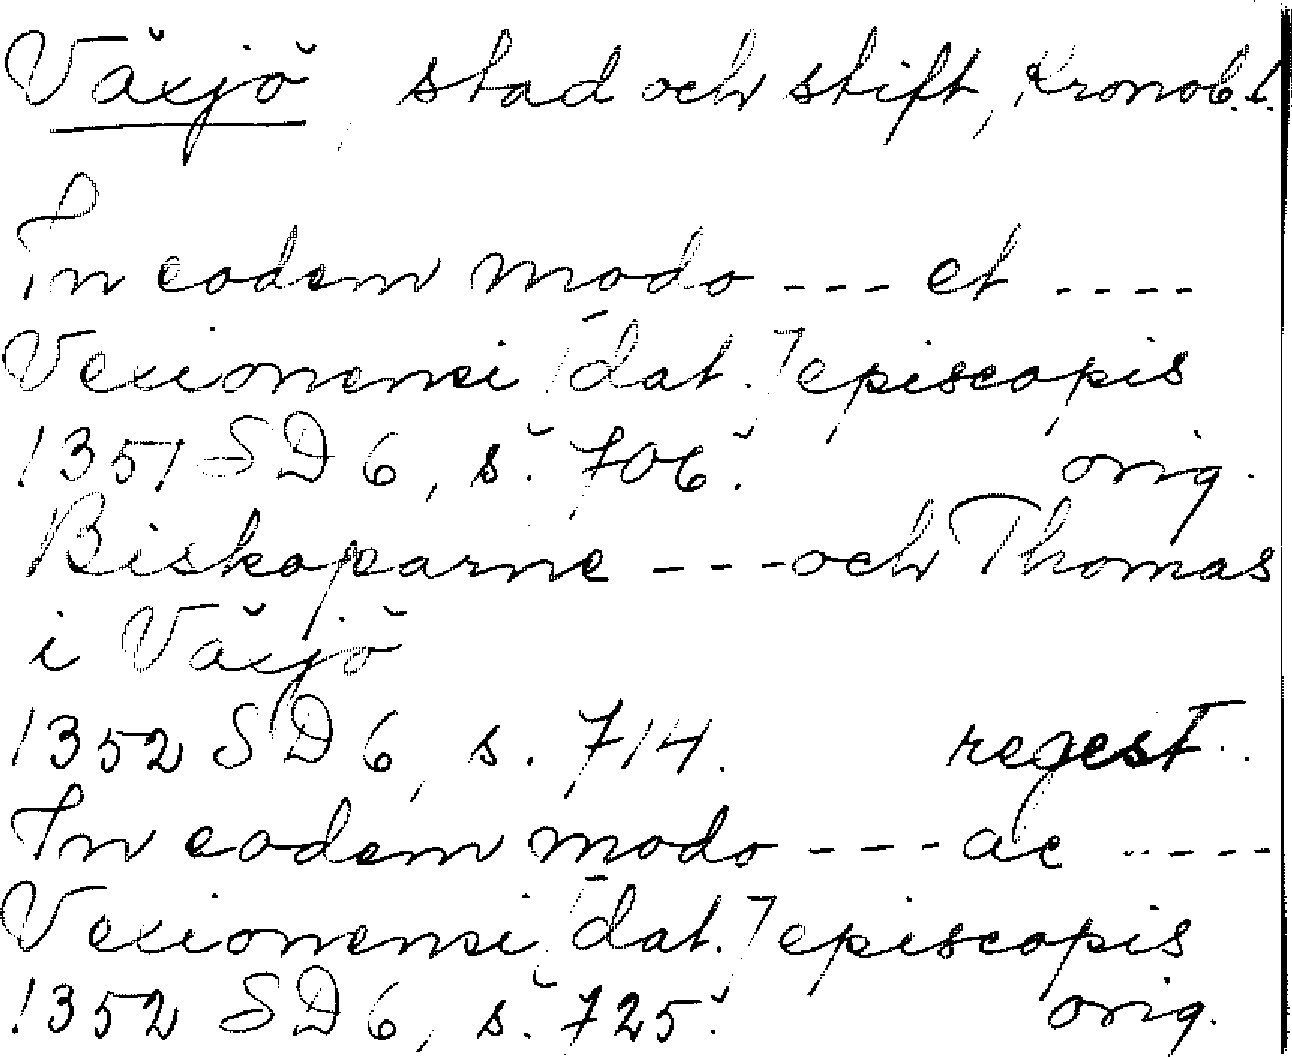 Växjö, stad och stift, Kronob.l.
In eodem modo --- et ----
Vexionensi [dat.] episcopis
1351 SD 6, s. 706. orig.
Biskoparne --- och Thomas
i Växjö
1352 SD 6, s. 714. regest.
In eodem modo --- ac ----
Vexionensi [dat.] episcopis
1352 SD 6, s. 725. orig.